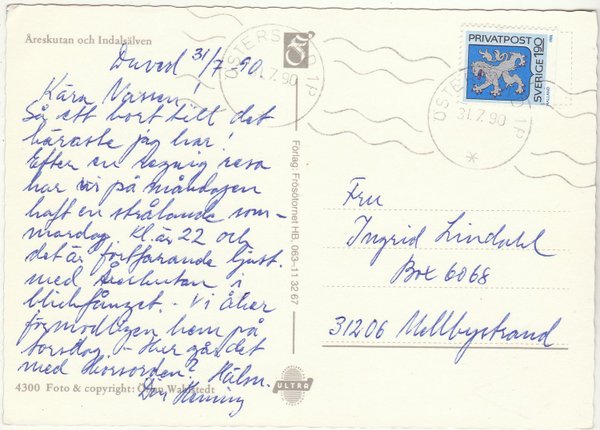 Åreskutan och Indalsälven
Duved 31/7 90
Kära Nassen!
Så ett kort till det
käraste jag har!
Efter en regnig resa
har vi på måndagen
haft en strålande som-
mardag. Kl. är 22 och
det är fortfarande ljust.
med Åreskutan i
blickfånget. - Vi åker
förmodligen hem på
torsdag. - Hur går det
med korsorden? Hälsn.
Din Henning
4300 Foto & copyright: Göran Wahlstedt
Förlag: Frösötornet HB 063-11 32 67
ULTRA
ÖSTERSUND 1P
31.7.90
PRIVATPOST
SVERIGE 1.90
ÖSTERSUND 1P
31.7.90
Fru
Ingrid Lindahl
Box 6068
31206 Mellbystrand